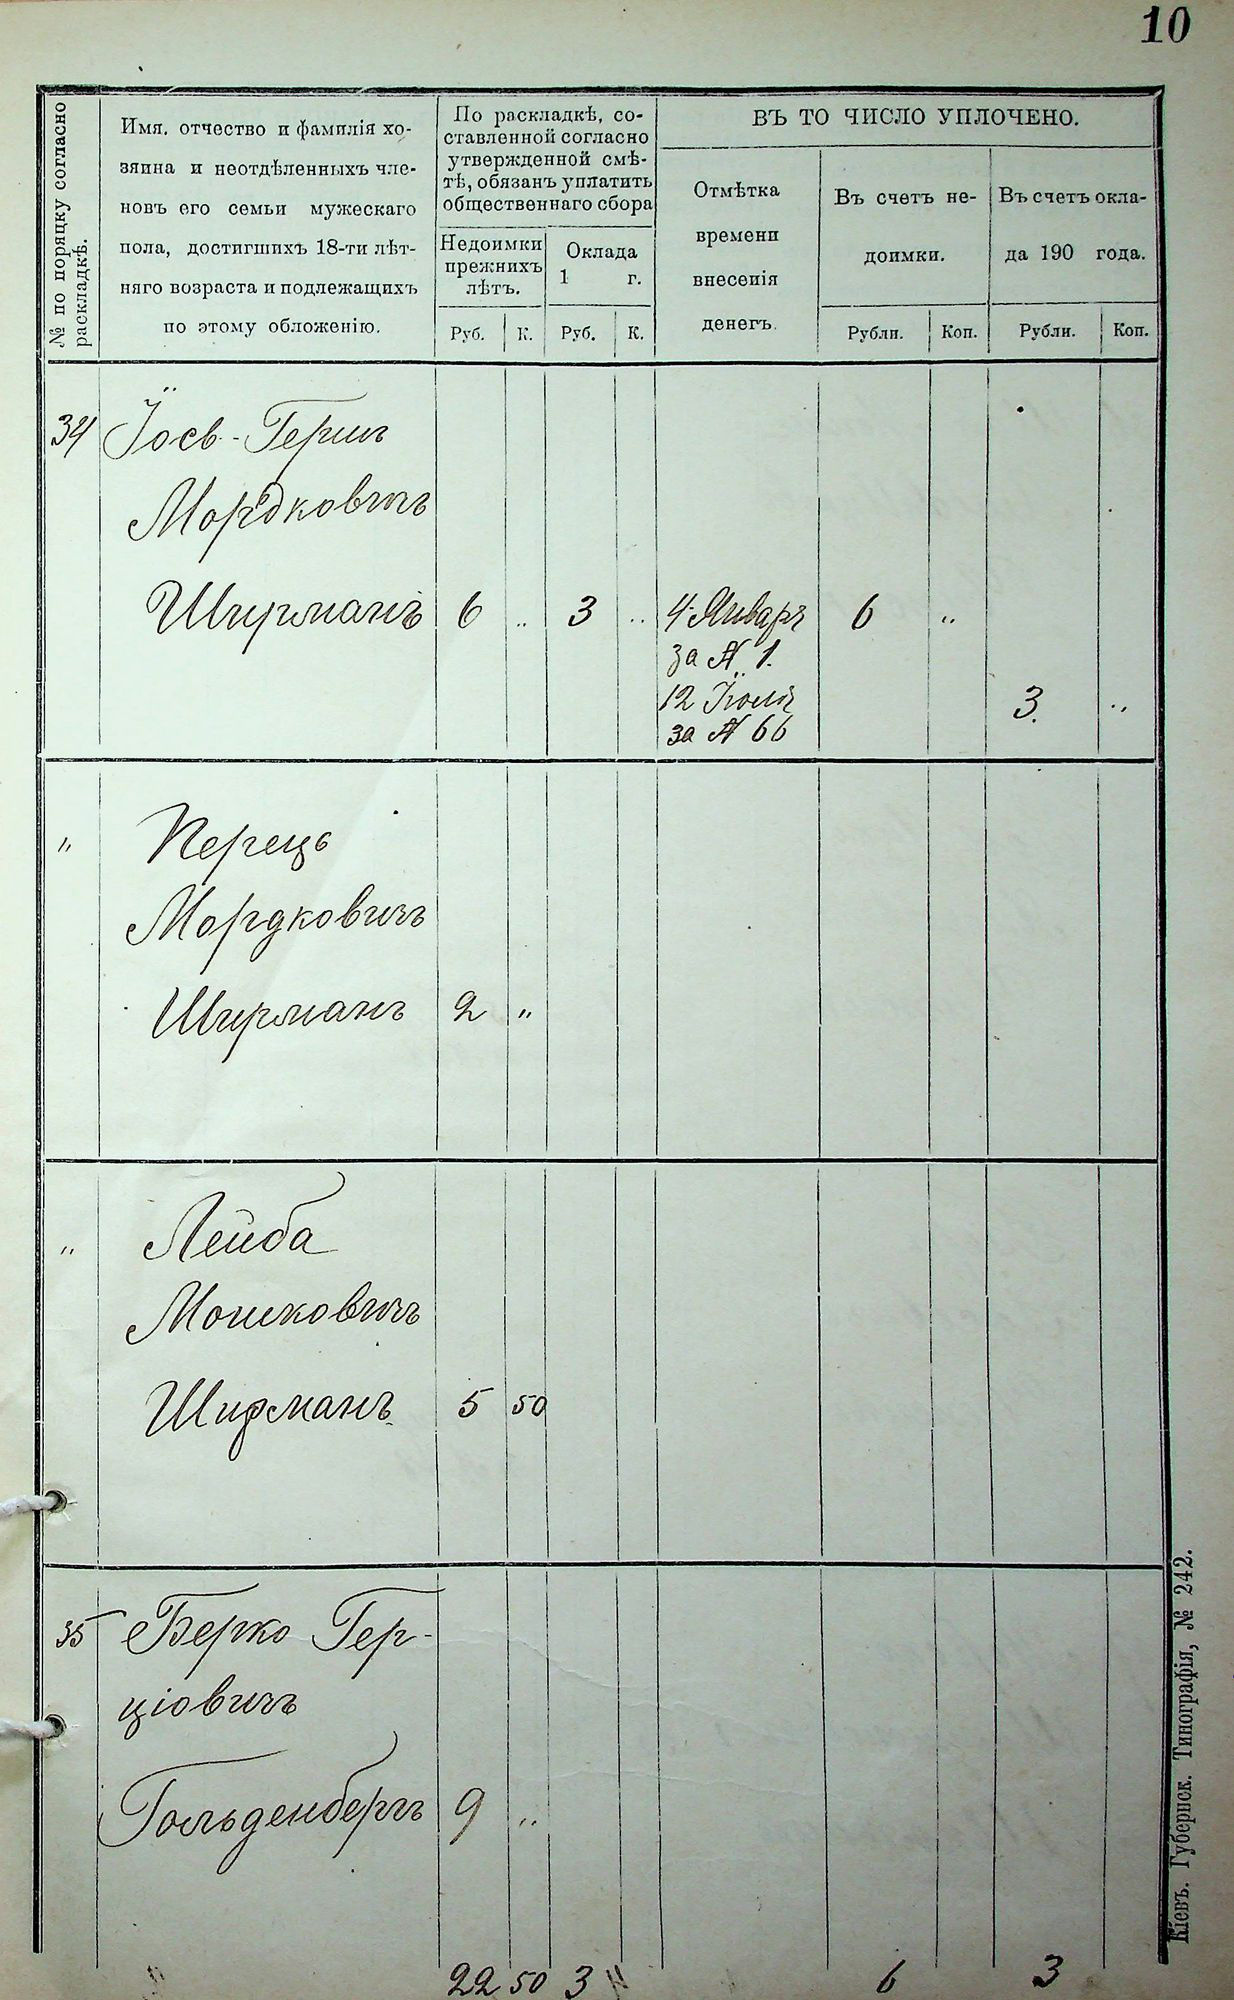 10
№ по порядку согласно
раскладкѣ.
Имя, отчество и фамилія хо-
зяина и неотдѣленныхъ чле-
новъ его семьи мужескаго
пола, достигшихъ 18-ти лѣт-
няго возраста и подлежащихъ
по этому обложенію.
По раскладкѣ, со-
ставленной согласно
утвержденной смѣ-
тѣ, обязанъ уплатить
общественнаго сбора
Недоимки
прежнихъ
лѣтъ.
Оклада
1 г.
Руб. К. Руб. К.
ВЪ ТО ЧИСЛО УПЛОЧЕНО.
Отмѣтка
времени
внесенія
денегъ.
Въ счетъ не-
доимки.
Въ счетъ окла-
да 190 года.
Рубли. Коп. Рубли. Коп.
34 Іосъ-Герш
Мордковичъ
Ширманъ 6 „ 3 „ 4 Января 6 „
за № 1.
12 Іюля 3. „
за № 66
„ Перецъ
Мордковичъ
Ширманъ 2 „
„ Лейба
Мошковичъ
Ширманъ 5 50
35 Берко Гер-
ціовичъ
Гольденбергъ 9 „
22 50 3 „ 6 3
Кіевъ. Губернск. Типографія, № 242.